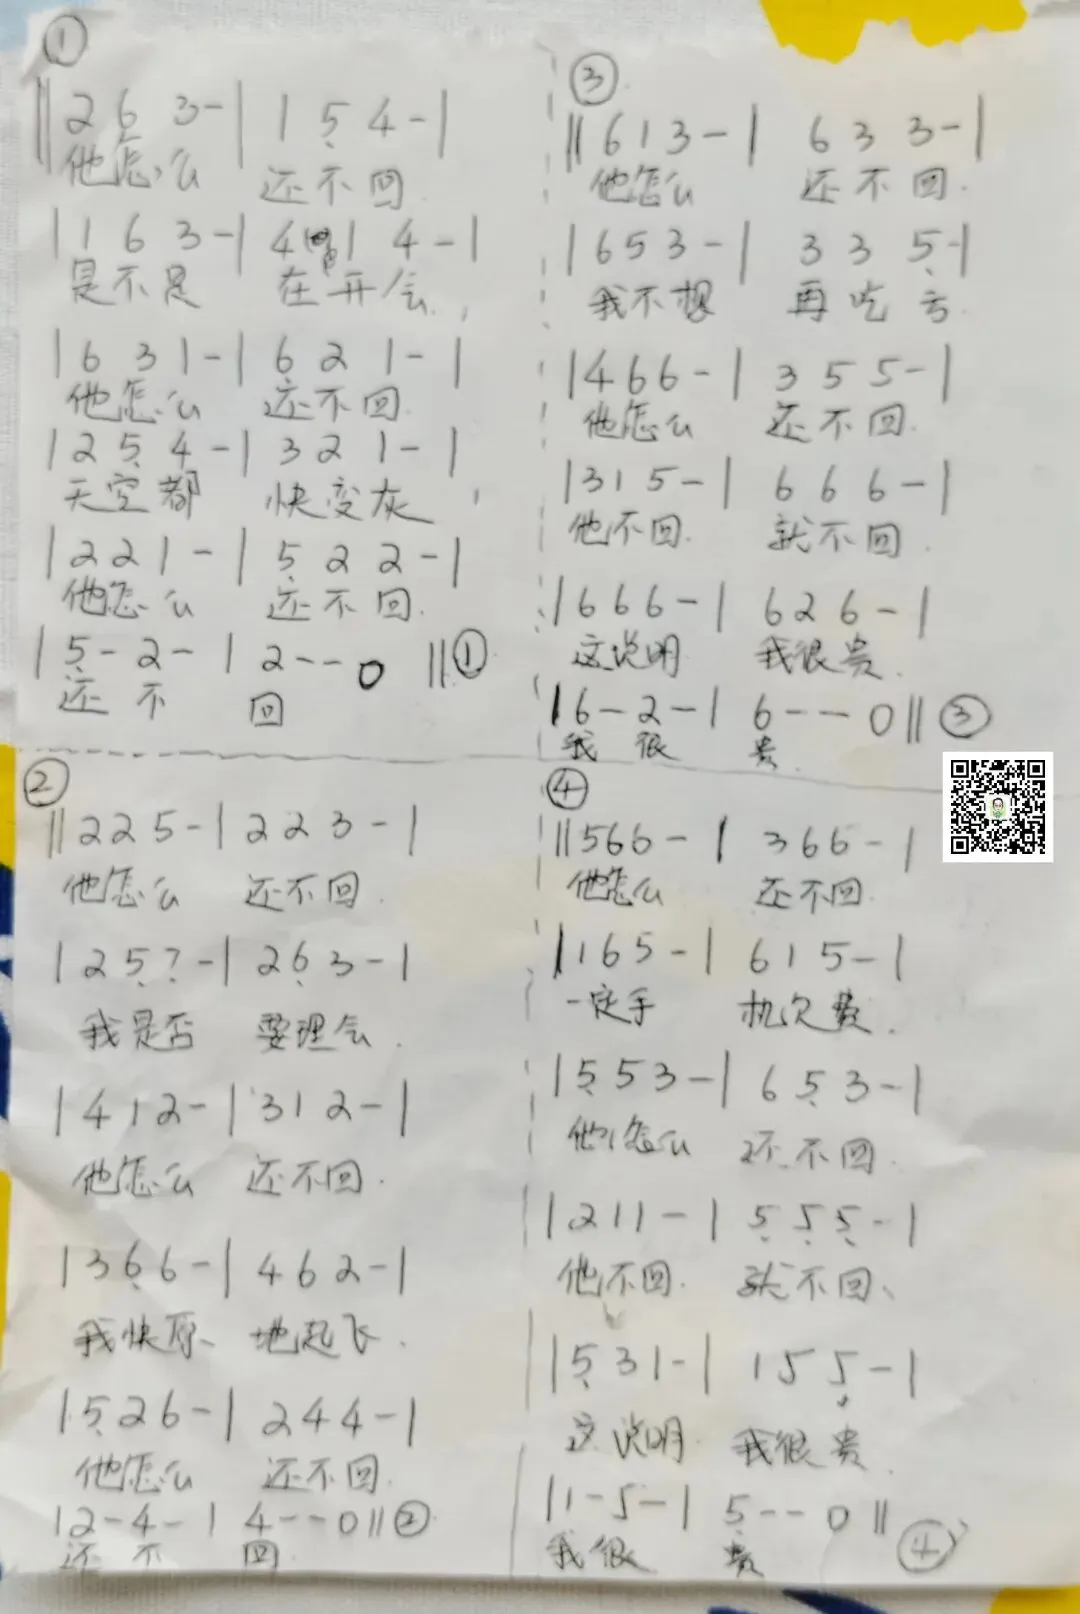 ①
‖ 2 6 3 - | 1 5̣ 4 - |
他怎么 还不回.
| 1 6 3 - | 4 1 4 - |
是不是 在开会.
| 6 3 1 - | 6 2 1 - |
他怎么 还不回.
| 2 5̣ 4 - | 3 2 1 - |
天空都 快变灰
| 2 2 1 - | 5̣ 2 2 - |
他怎么 还不回.
| 5̣ - 2 - | 2 - - 0 ‖ ①
还 不 回
②
‖ 2 2 5 - | 2 2 3 - |
他怎么 还不回.
| 2 5̣ 7̣ - | 2 6̣ 3 - |
我是否 要理会.
| 4 1 2 - | 3 1 2 - |
他怎么 还不回.
| 3 6̣ 6 - | 4 6 2 - |
我快原、 地起飞.
| 5̣ 2 6 - | 2 4 4 - |
他怎么 还不回.
| 2 - 4 - | 4 - - 0 ‖ ②
还 不 回.
③
‖ 6 1 3 - | 6 3 3 - |
他怎么 还不回.
| 6 5 3 - | 3 3 5̣ - |
我不想 再吃亏
| 4 6 6 - | 3 5 5 - |
他怎么 还不回.
| 3 1 5 - | 6 6 6 - |
他不回. 就不回.
| 6 6 6 - | 6 2 6 - |
这说明 我很贵.
| 6 - 2 - | 6 - - 0 ‖ ③
我 很 贵.
④
‖ 5 6 6 - | 3 6 6 - |
他怎么 还不回.
| 1 6 5 - | 6 1 5 - |
一定手 机欠费.
| 5̣ 5 3 - | 6 5̣ 3 - |
他怎么 还不回.
| 2 1 1 - | 5̣ 5̣ 5̣ - |
他不回. 就不回、
| 5̣ 3 1 - | 1 5 5̣ - |
这说明 我很贵.
| 1 - 5 - | 5̣ - - 0 ‖ ④
我很 贵